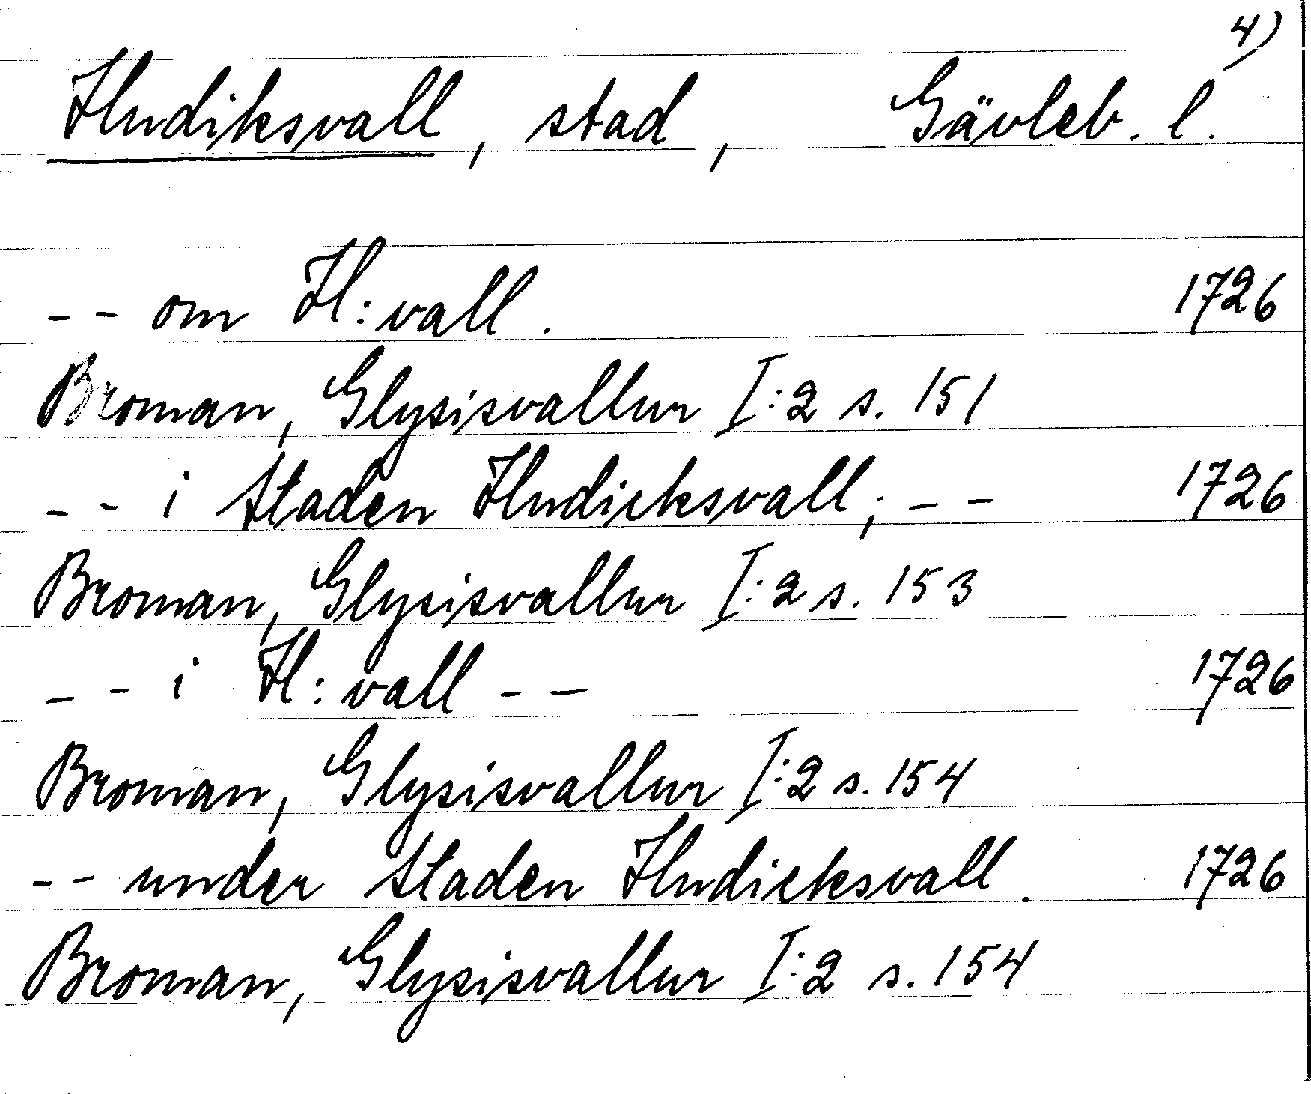 4)
Hudiksvall, stad, Gävleb. l.
-- om H:vall. 1726
Broman, Glysisvallur I:2 s. 151
-- i Staden Hudicksvall; -- 1726
Broman, Glysisvallur I:2 s. 153
-- i H:vall -- 1726
Broman, Glysisvallur I:2 s. 154
-- under Staden Hudicksvall. 1726
Broman, Glysisvallur I:2 s. 154